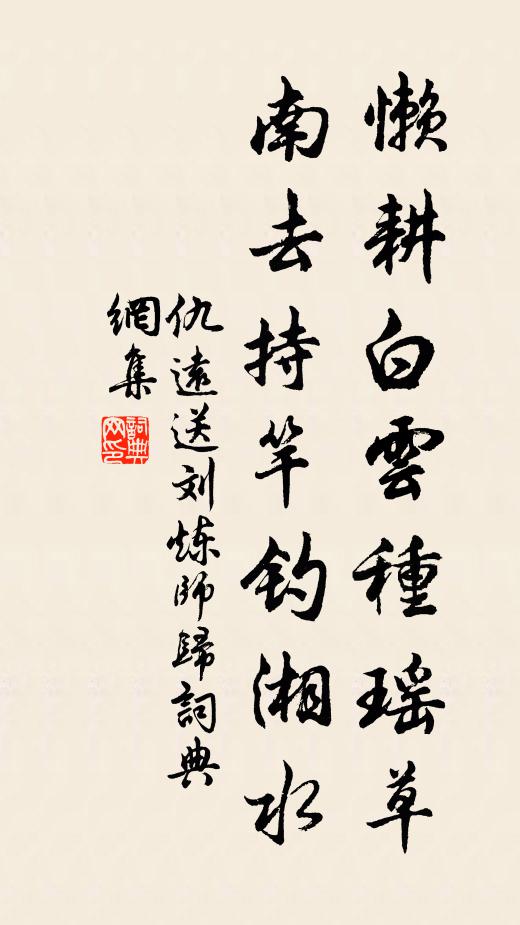 懒耕白雲種瑶草
南去持竿钓湘水
仇遠送刘炼师歸詞典
網集
詞典
网印